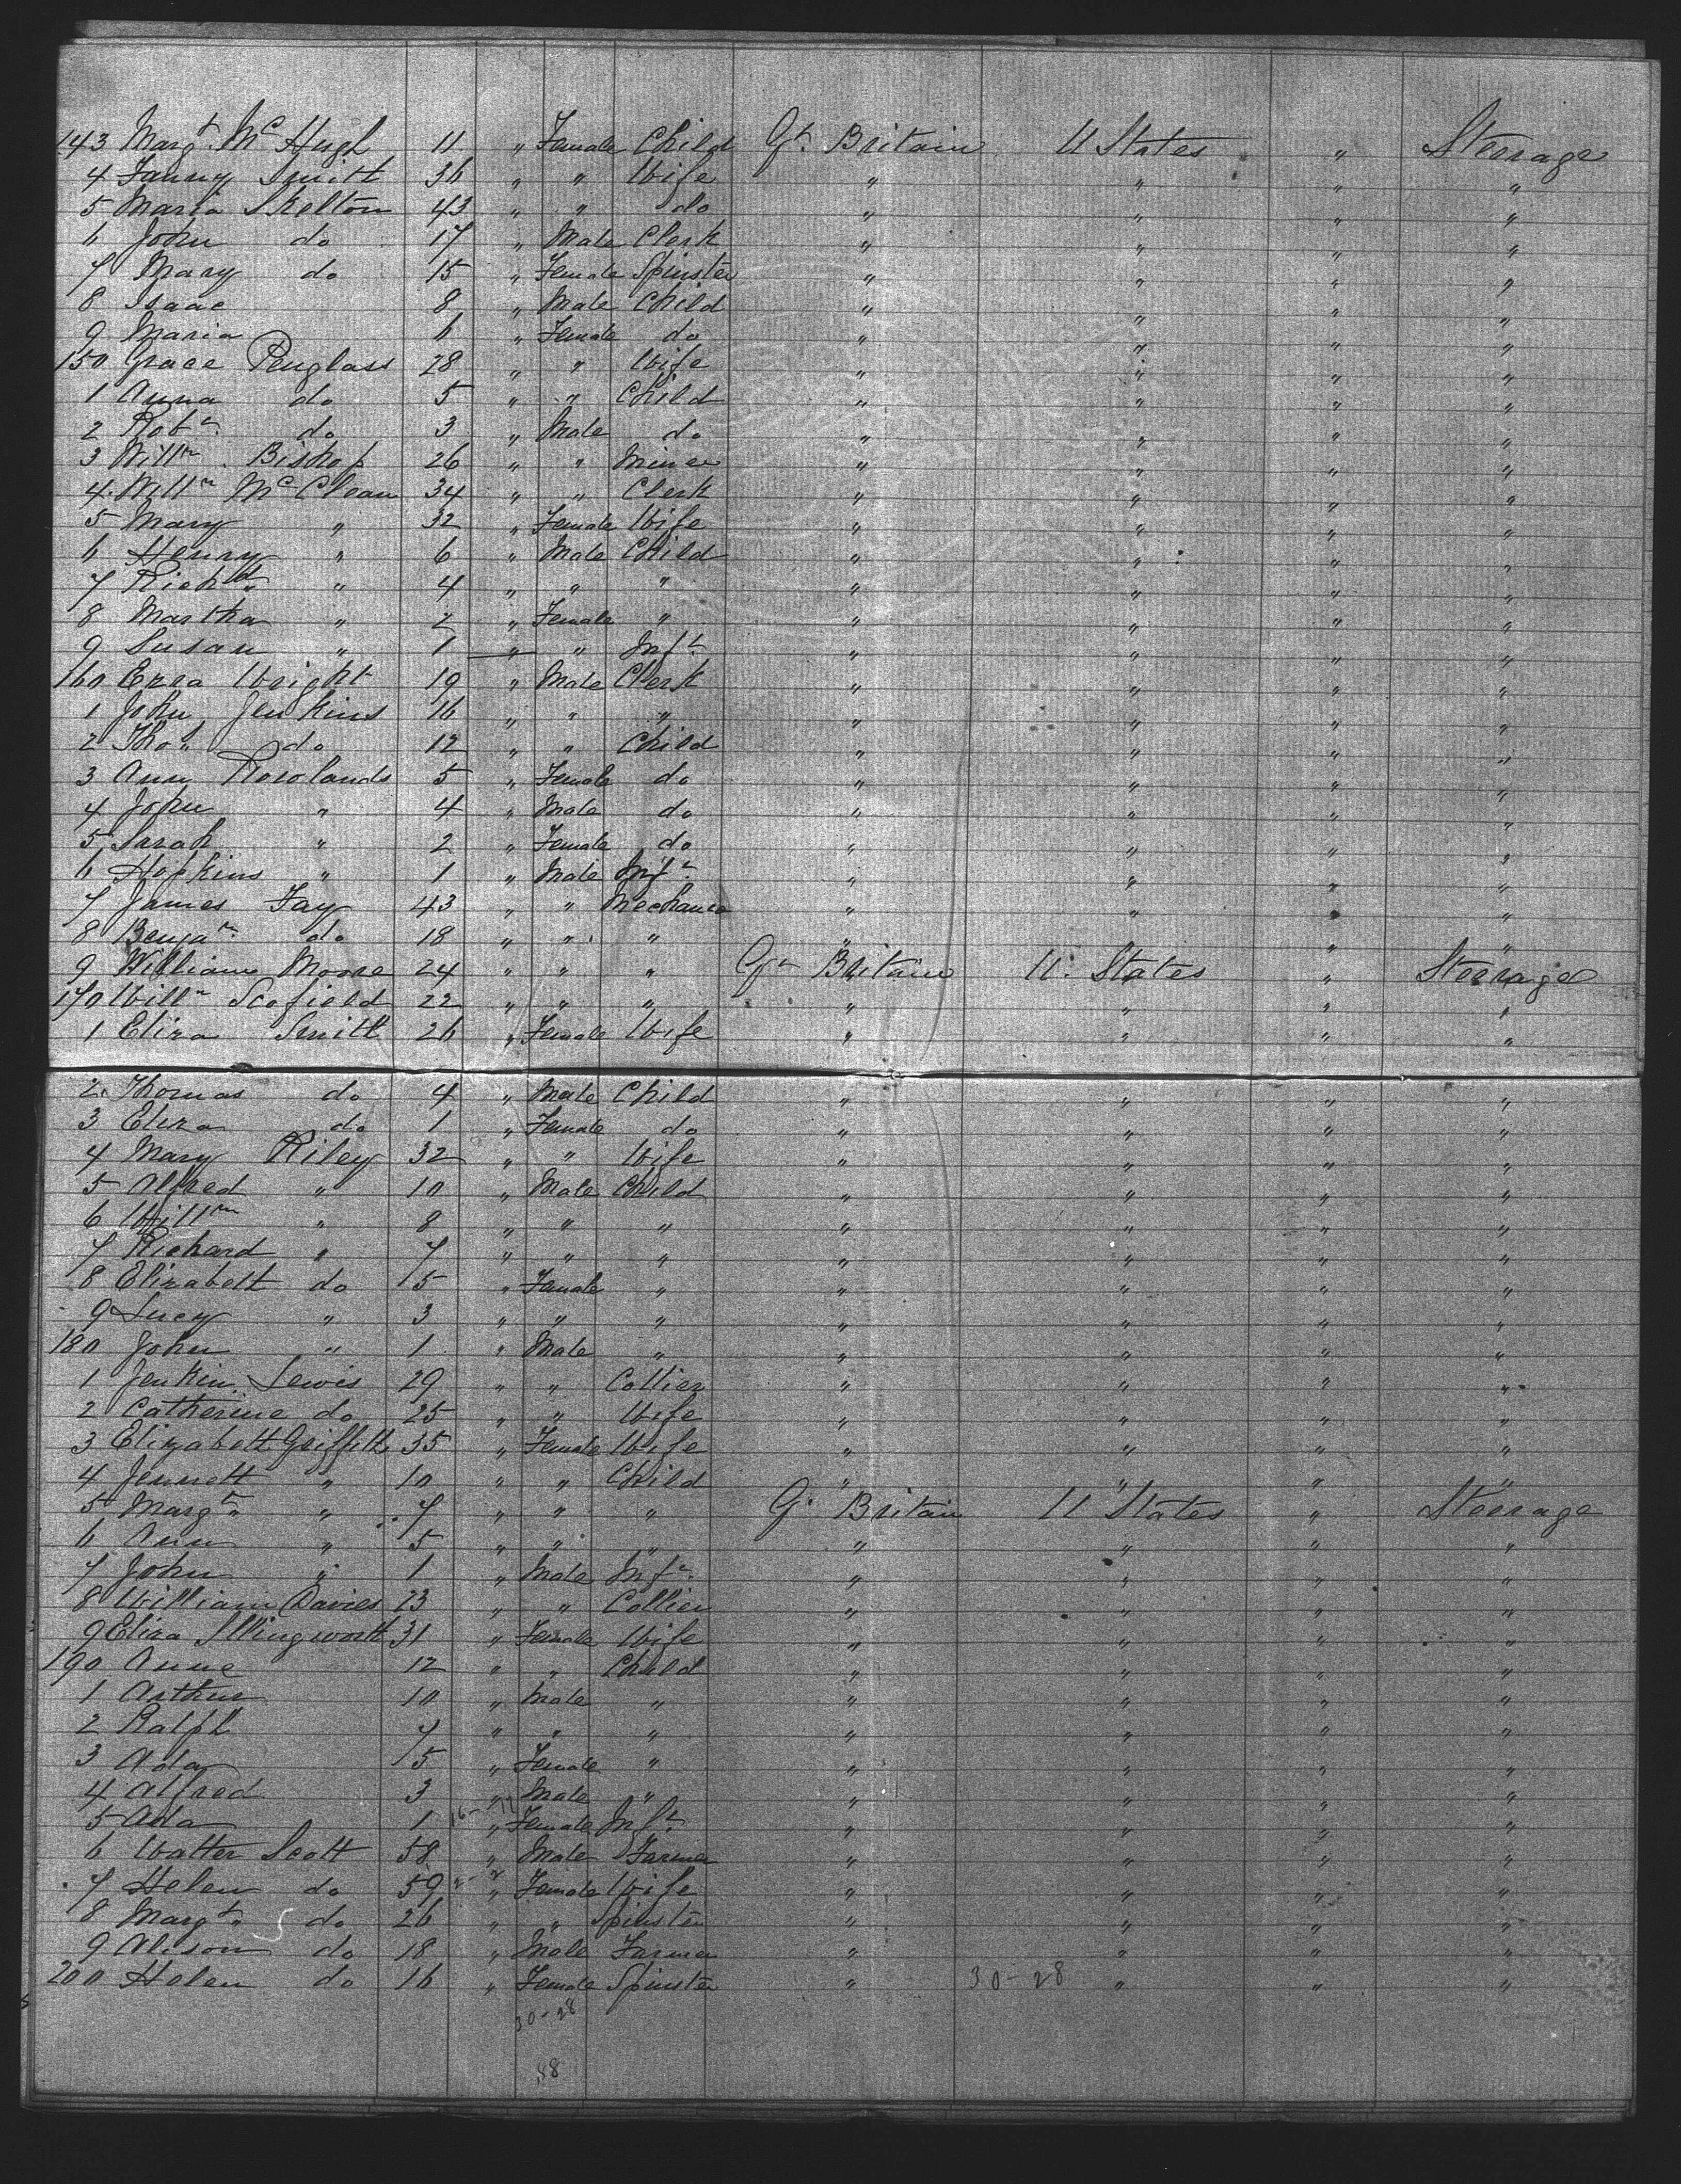 143 Margt. McHugh 11 " Female Child Gt. Britain U States " Steerage
4 Fanny Smith 36 " " Wife " " " "
5 Maria Skelton 43 " " do " " " "
6 John do 17 " Male Clerk " " " "
7 Mary do 15 " Female Spinster " " " "
8 Isaac 8 " Male Child " " " "
9 Maria 6 " Female do " " " "
150 Grace Penglass 28 " " Wife " " " "
1 Anna do 5 " " Child " " " "
2 Robt. do 3 " Male do " " " "
3 Willm. Bishop 26 " " Miner " " " "
4 Willm McClean 34 " " Clerk " " " "
5 Mary " 32 " Female Wife " " " "
6 Henry " 6 " Male Child " " " "
7 Richd " 4 " " " " " " "
8 Martha " 2 " Female " " " " "
9 Susan " 1 " " Inft. " " " "
160 Ezra Wright 19 " Male Clerk " " " "
1 John Jenkins 16 " " " " " " "
2 Thos. do 12 " " Child " " " "
3 Ann Rowlands 5 " Female do " " " "
4 John " 4 " Male do " " " "
5 Sarah " 2 " Female do " " " "
6 Hopkins " 1 " Male Inft. " " " "
7 James Fay 43 " " Mechanic " " " "
8 Benjan. do 18 " " " " " "
9 William Moore 24 " " " Gt Britain U. States " Steerage
170 Willm Scofield 22 " " " " " " "
1 Eliza Smith 26 " Female Wife " " " "
2 Thomas do 4 " Male Child " " " "
3 Eliza do 1 " Female do " " " "
4 Mary Riley 32 " " Wife " " " "
5 Alfred " 10 " Male Child " " " "
6 Willm " 8 " " " " " " "
7 Richard " 7 " " " " " " "
8 Elizabeth do 5 " Female " " " " "
9 Lucy " 3 " " " " " " "
180 John " 1 " Male " " " " "
1 Jenkin Lewis 29 " " Collier " " " "
2 Catherine do 25 " " Wife " " " "
3 Elizabeth Griffith 35 " Female Wife " " " "
4 Jennett " 10 " " Child " " " "
5 Margt. " 7 " " " Gt Britain U States " Steerage
6 Ann " 5 " " " " " " "
7 John " 1 " Male Inft. " " " "
8 William Davies 23 " " Collier " " " "
9 Eliza Illingworth 31 " Female Wife " " " "
190 Anne 12 " " Child " " " "
1 Arthur 10 " Male " " " " "
2 Ralph 7 " " " " " " "
3 Ada 5 " Female " " " " "
4 Alfred 3 " Male " " " " "
5 Ada 1 " Female Inft. " " " "
6 Walter Scott 58 " Male Farmer " " " "
7 Helen do 59 " Female Wife " " " "
8 Margt. do 26 " " Spinster " " " "
9 Alison do 18 " Male Farmer " " " "
200 Helen do 16 " Female Spinster " 30-28 " " "
30-28